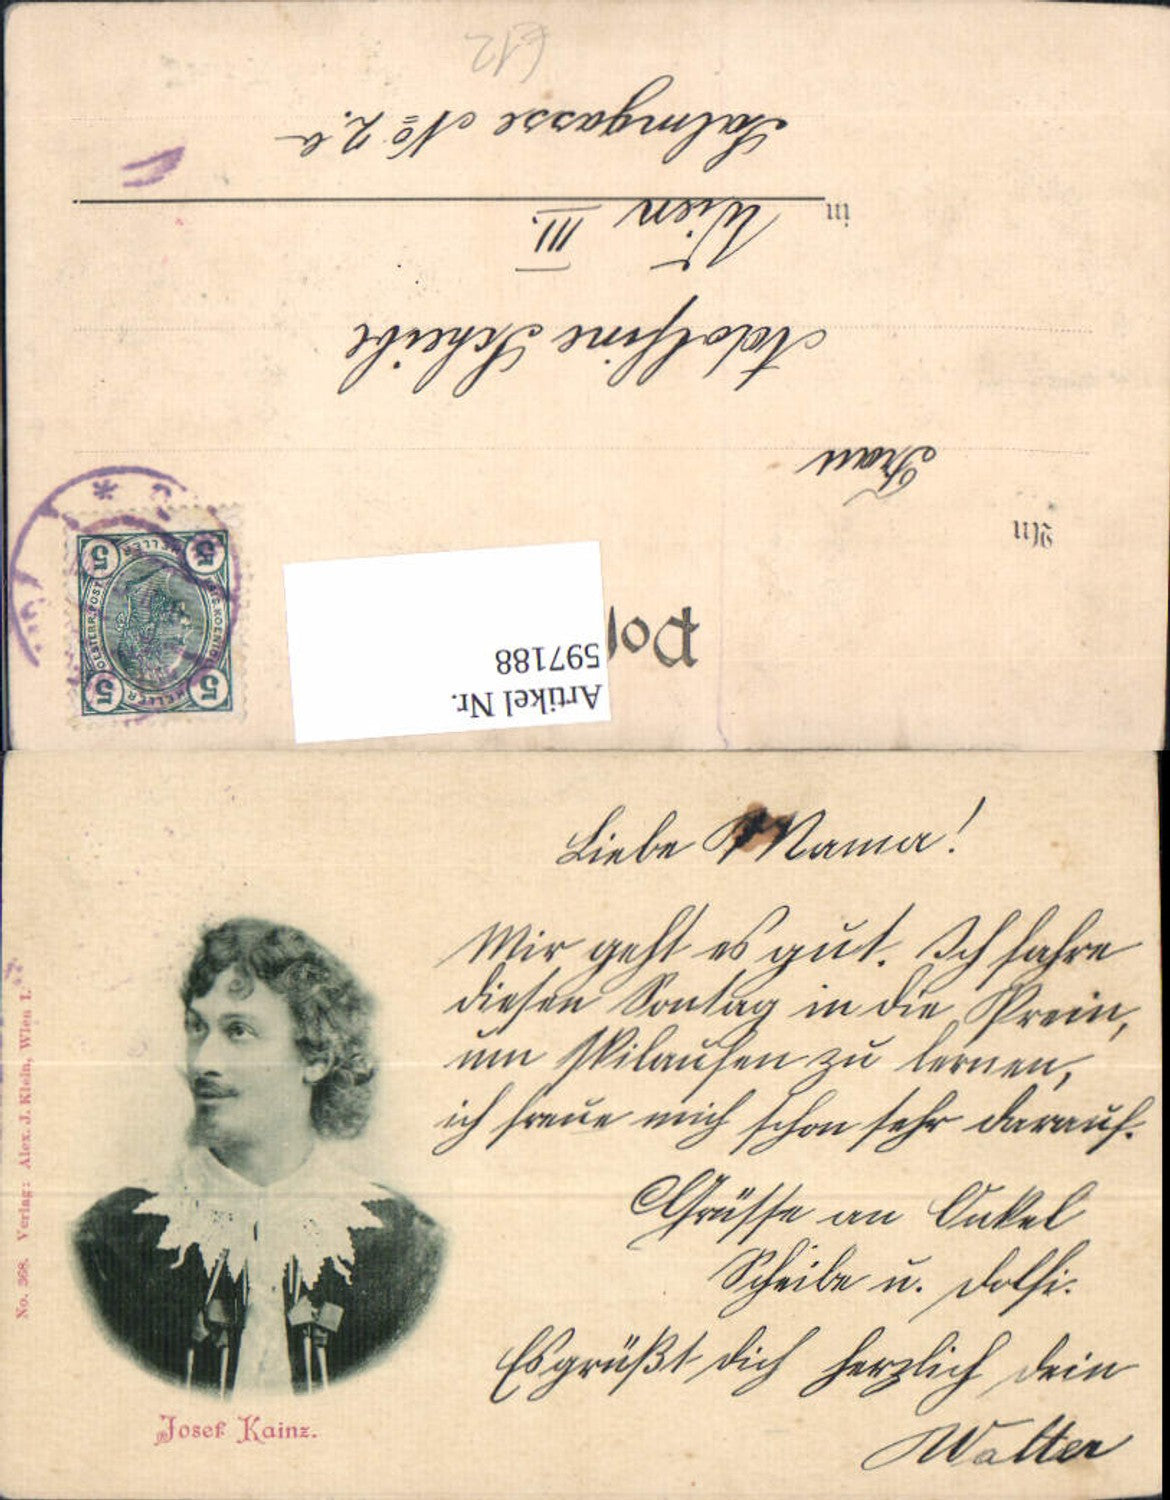 Artikel Nr.
597188
An
Frau
Adolfine Scheibe
in Wien III.
Salmgasse No 2.a
612
5 HELLER 5
OESTERR. POST
5 HELLER 5
Liebe Mama!
Mir geht es gut. Ich fahre
diesen Sontag in die Prein,
um skilaufen zu lernen,
ich freue mich schon sehr darauf.
Grüsse an Onkel
Scheibe u. Dolfi.
Es grüßt dich herzlich dein
Walter
Josef Kainz.
No. 368. Verlag: Alex. J. Klein, Wien I.